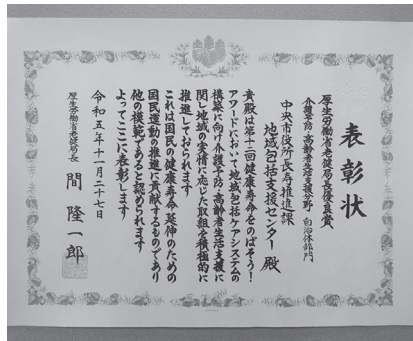 表彰状
厚生労働省老健局長優良賞
介護予防・高齢者生活支援分野 自治体部門
中央市役所長寿推進課
地域包括支援センター 殿
貴殿は第十二回健康寿命をのばそう！
アワードにおいて地域包括ケアシステムの
構築に向け介護予防・高齢者生活支援に
関し地域の実情に応じた取組を積極的に
推進しておられます
これは国民の健康寿命延伸のための
国民運動の推進に貢献するものであり
他の模範であると認められます
よってここに表彰します
令和五年十一月二十七日
厚生労働省老健局長 間 隆一郎